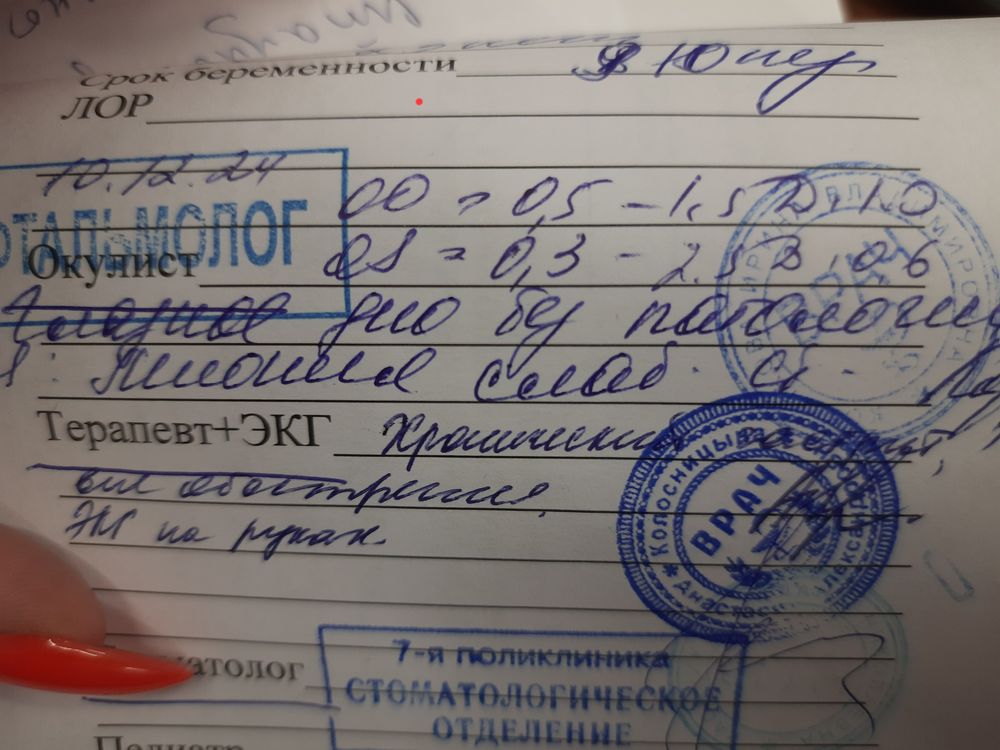 Срок беременности 10 нед
ЛОР
10.12.24
ОФТАЛЬМОЛОГ
OD = 0,5 - 1.5 D = 1.0
Окулист OS = 0,3 - 2.5 D = 0.6
Глазное дно без патологии
: Миопия слаб. с.
Терапевт+ЭКГ Хронический гастрит,
вне обострения.
ЭКГ на руках.
ВРАЧ
Колосницына Анастасия Александровна
матолог
7-я ПОЛИКЛИНИКА
СТОМАТОЛОГИЧЕСКОЕ
ОТДЕЛЕНИЕ